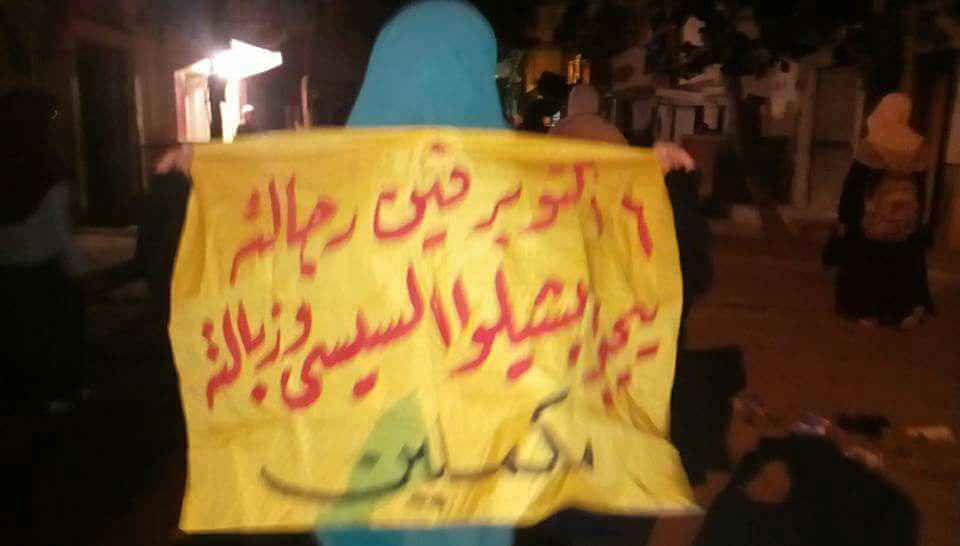 ٦ اكتوبر فين رجالة
ييجوا يشيلوا السيسى وزبالة
مكملين